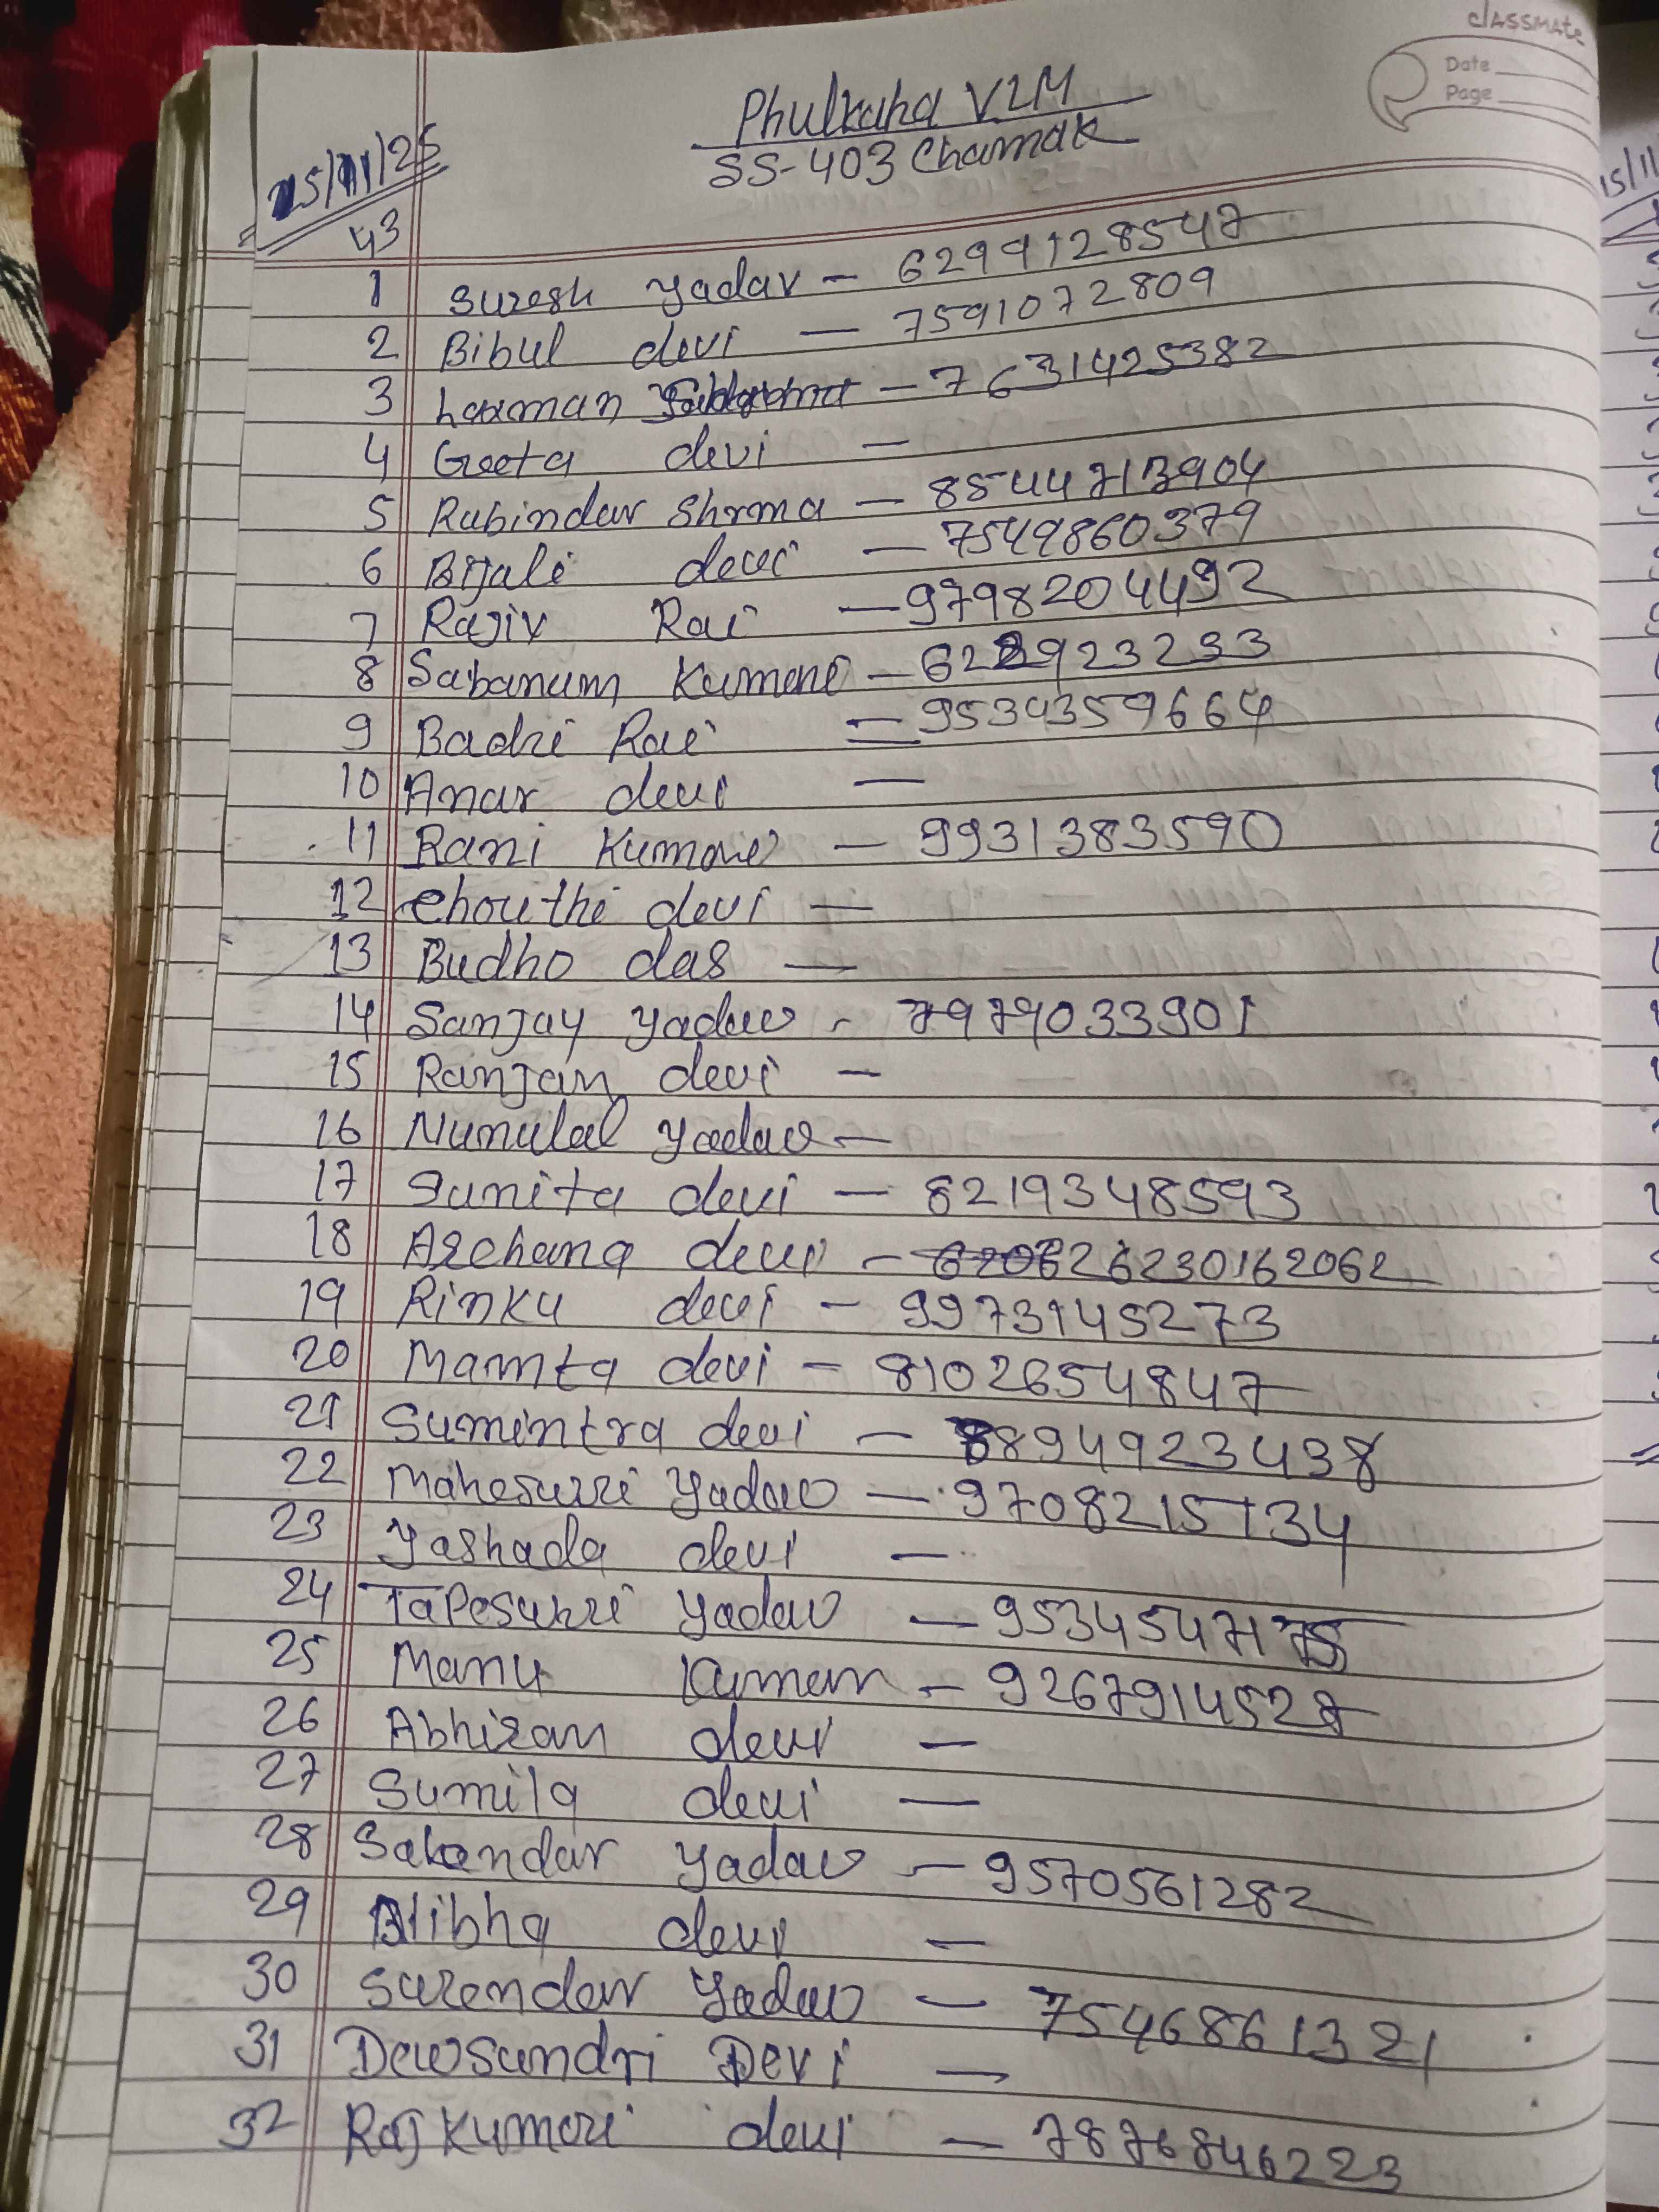 classmate
Date
Page
Phulkaha V2M
SS-403 Chamak
25/11/25
43
1 Suresh Yadav - 6299128547
2 Bibul devi - 7591072809
3 Laxman - 7631425382
4 Geeta devi -
5 Rabindar Shrma - 8544713904
6 Bijali devi - 7549860379
7 Rajiv Rai - 9798204492
8 Sabanum Kumari -
9 Badri Rai - 9534359664
10 Anar devi -
11 Rani Kumari - 9931383590
12 chouthi devi -
13 Budho das -
14 Sanjay Yadav - 7979033901
15 Ranjan devi -
16 Nunulal Yadav -
17 Sunita devi - 8219348593
18 Archana devi - 6230162062
19 Rinku devi - 9973145273
20 Mamta devi - 8102654847
21 Sumintra devi - 8894923438
22 Maheswri Yadav - 9708215134
23 Yashada devi -
24 Tapeswri Yadav - 9534547175
25 Manu Kumar - 9267914527
26 Abhiran devi -
27 Sumila devi -
28 Sakendar Yadav - 9570561282
29 Bibha devi -
30 Surendar Yadav - 7546861321
31 Dewsundri Devi -
32 Raj Kumari devi - 7876846223